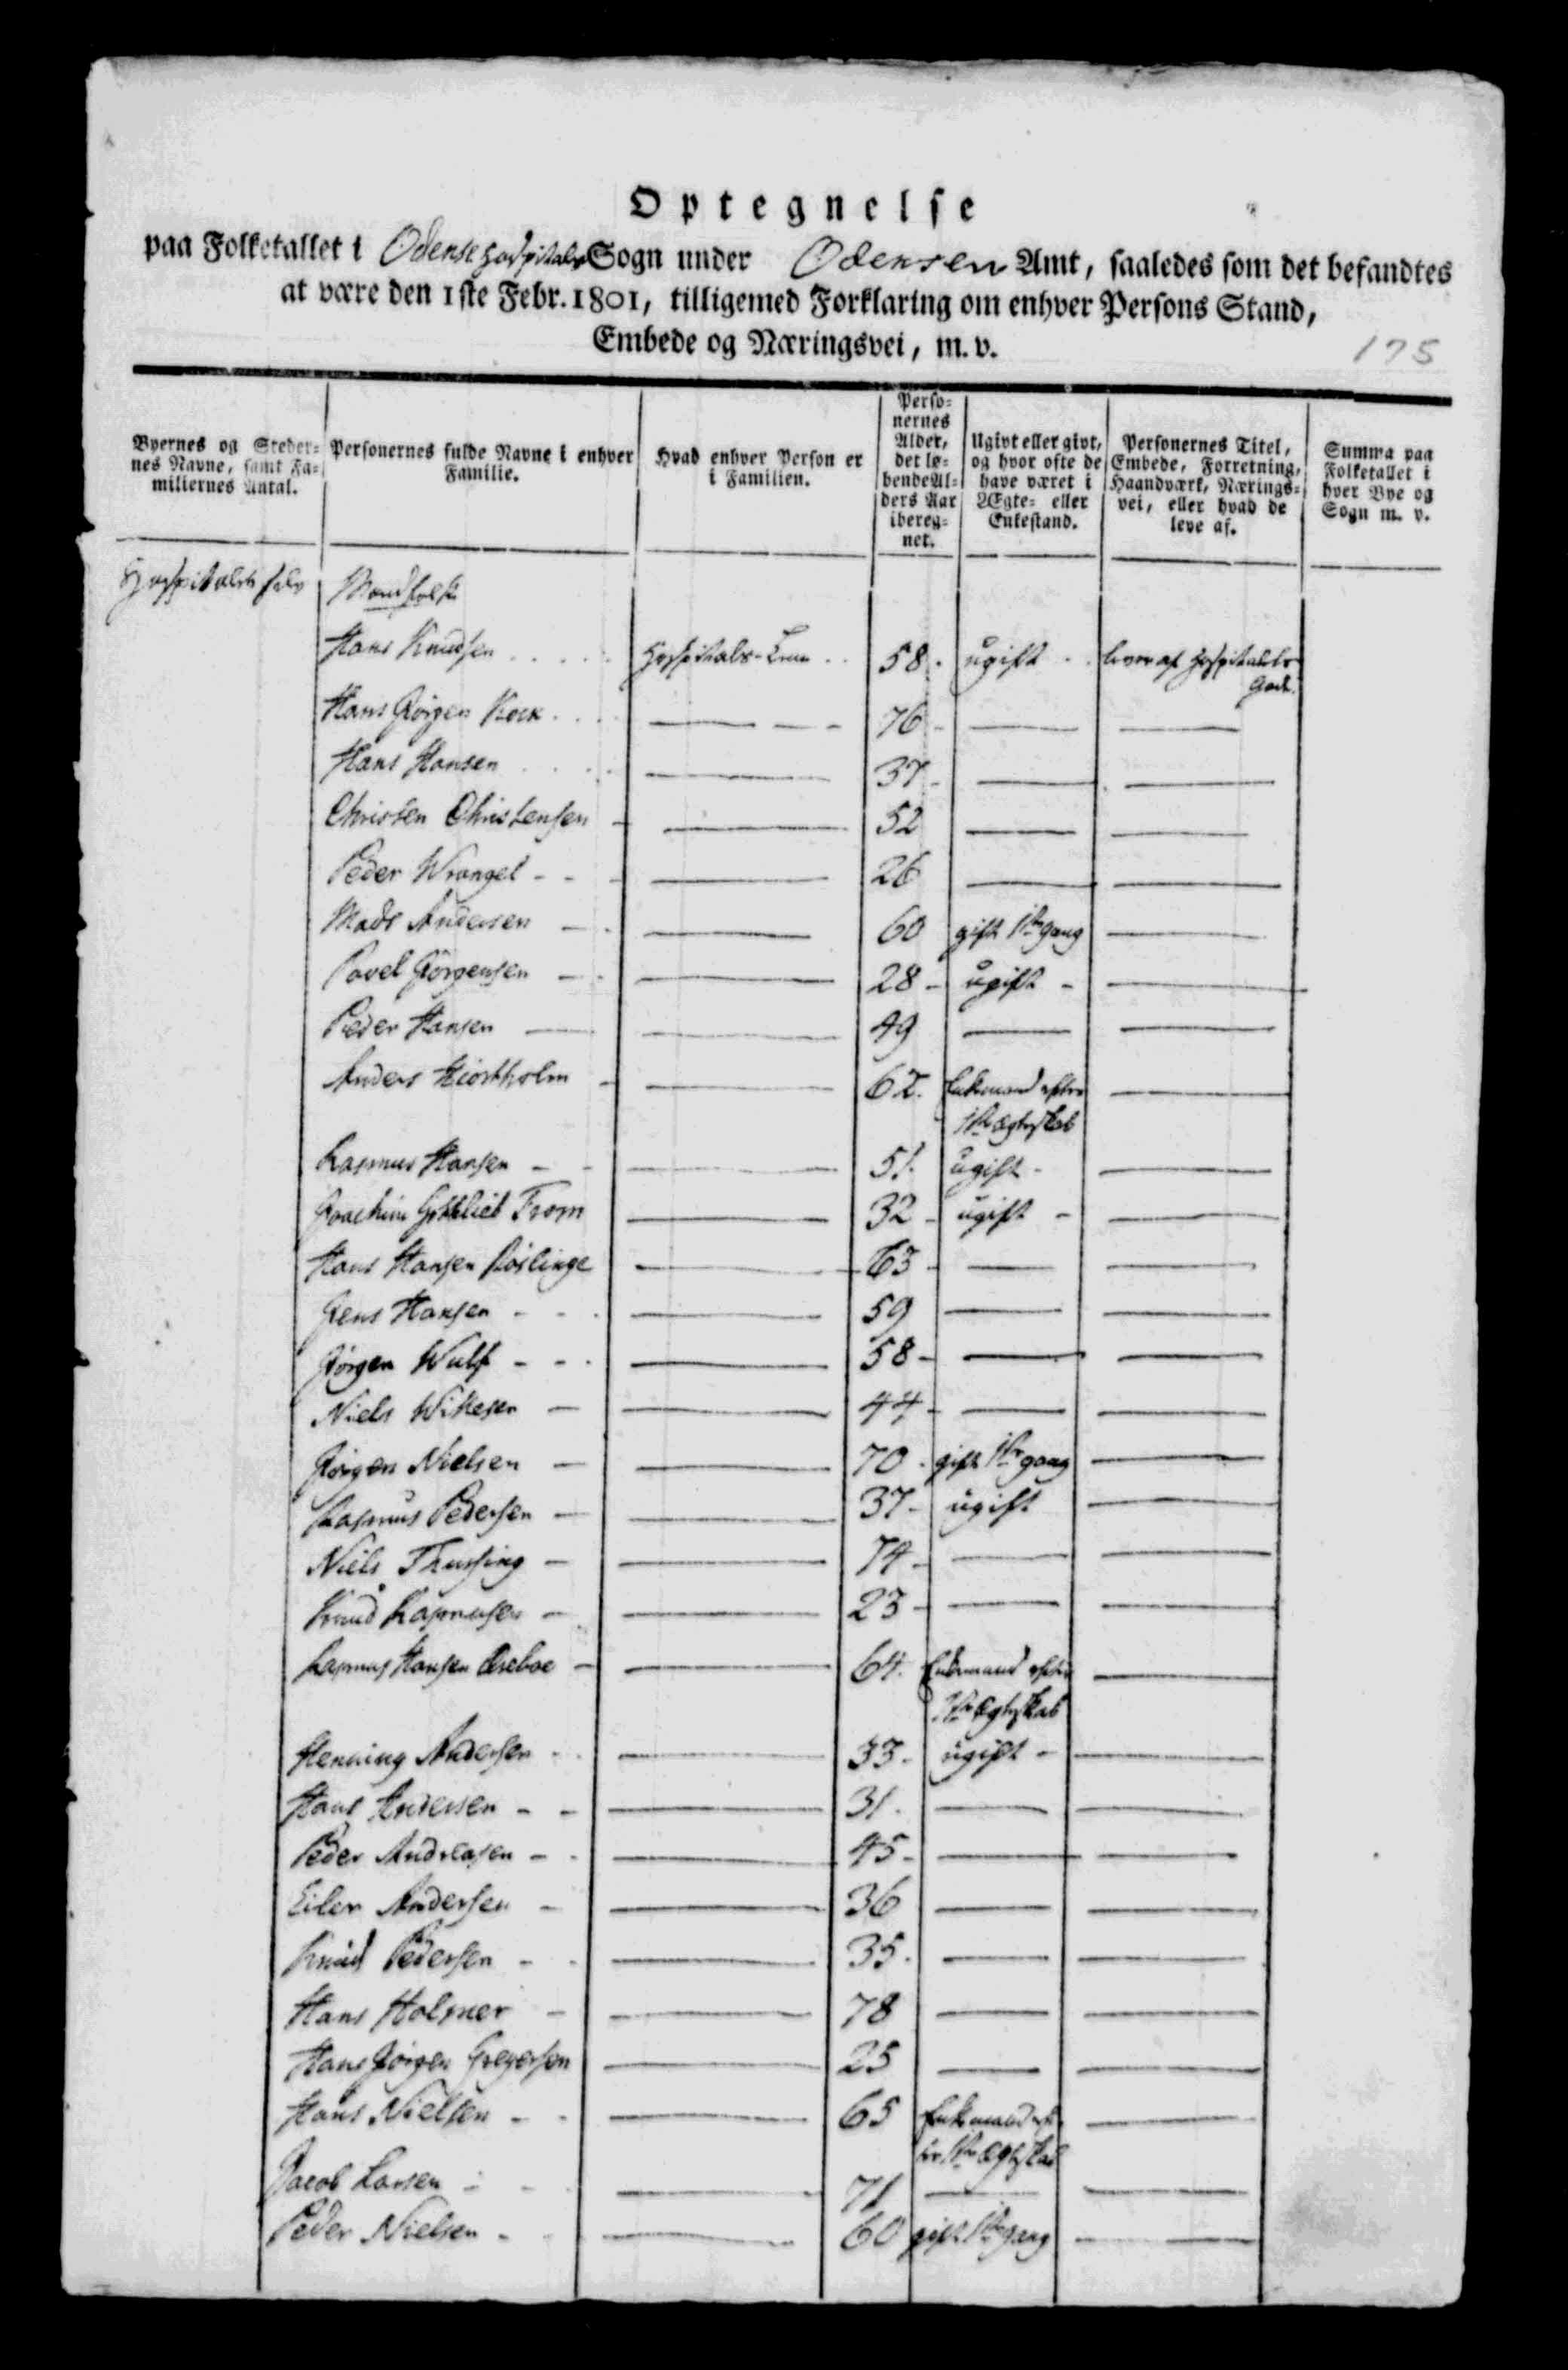 Optegnelse
paa Folketallet i Odense Hospitals Sogn under Odensen Amt, saaledes som det befandtes
at være den 1ste Febr. 1801, tilligemed Forklaring om enhver Persons Stand,
Embede og Næringsvei, m. v.
175
Byernes og Steder-
nes Navne, samt Fa-
miliernes Antal.
Personernes fulde Navne i enhver
Familie.
Hvad enhver Person er
i Familien.
Perso-
nernes
Alder,
det lø-
bende Al-
ders Aar
ibereg-
net.
Ugivt eller givt,
og hvor ofte de
have været i
Ægte- eller
Enkestand.
Personernes Titel,
Embede, Forretning,
Haandværk, Nærings-
vei, eller hvad de
leve af.
Summa paa
Folketallet i
hver Bye og
Sogn m. v.
Hospitalets selv Mandfolk
Hans Knudsen Hospitals-Lem 58. ugift lever af Hospitalets
Gods.
Hans Jørgen Kock 76
Hans Hansen 37
Christen Christensen 52
Peder Wrangel 26
Mads Andersen 60 gift 1ste gang
Povel Jørgensen 28 ugift
Peder Hansen 49
Anders Hiortholm 62. Enkemand efter
1ste Ægteskab
Rasmus Hansen 51. ugift
Joachim Gottlieb From 32 ugift
Hans Hansen 63
Jens Hansen 59
Jørgen Wulf 58
Niels 44
Jørgen Nielsen 70 gift 1ste gang
Rasmus Pedersen 37 ugift
Niels 74
Knud Rasmusen 23
Rasmus Hansen 64. Enkemand efter
1ste Ægteskab
Henning Andersen 33 ugift
Hans Andersen 31.
Peder Andreasen 45
Eiler Andersen 36
Knud Pedersen 35.
Hans Holmer 78
Hans Jørgen Gregersen 25
Hans Nielsen 65 Enkemand ef-
ter 1ste Ægteskab
Jacob Larsen 71
Peder Nielsen 60 gift 1ste gang